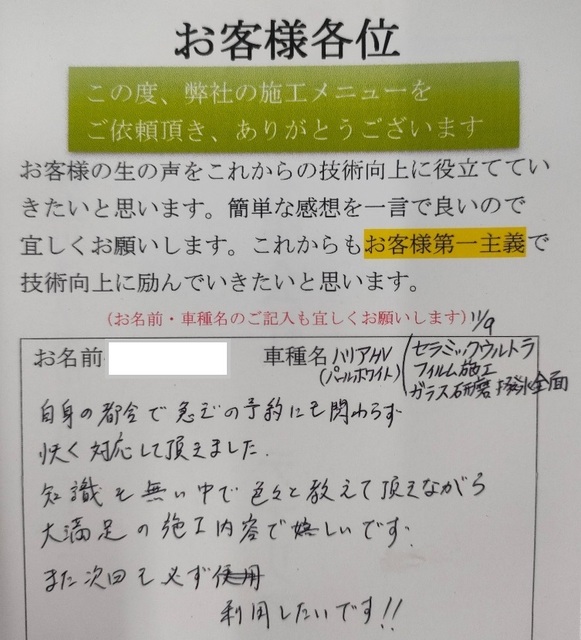 お客様各位
この度、弊社の施工メニューを
ご依頼頂き、ありがとうございます
お客様の生の声をこれからの技術向上に役立ててい
きたいと思います。簡単な感想を一言で良いので
宜しくお願いします。これからもお客様第一主義で
技術向上に励んでいきたいと思います。
(お名前・車種名のご記入も宜しくお願いします) 11/9
お名前 車種名 ハリアHV
(パールホワイト)
セラミックウルトラ
フィルム施工
ガラス研磨 撥水全面
自身の都合で急ぎの予約にも関わらず
快く対応して頂えました.
知識も無い中で色々と教えて頂えながら
大満足の施工内容で嬉しいです.
また次回も必ず
利用したいです!!